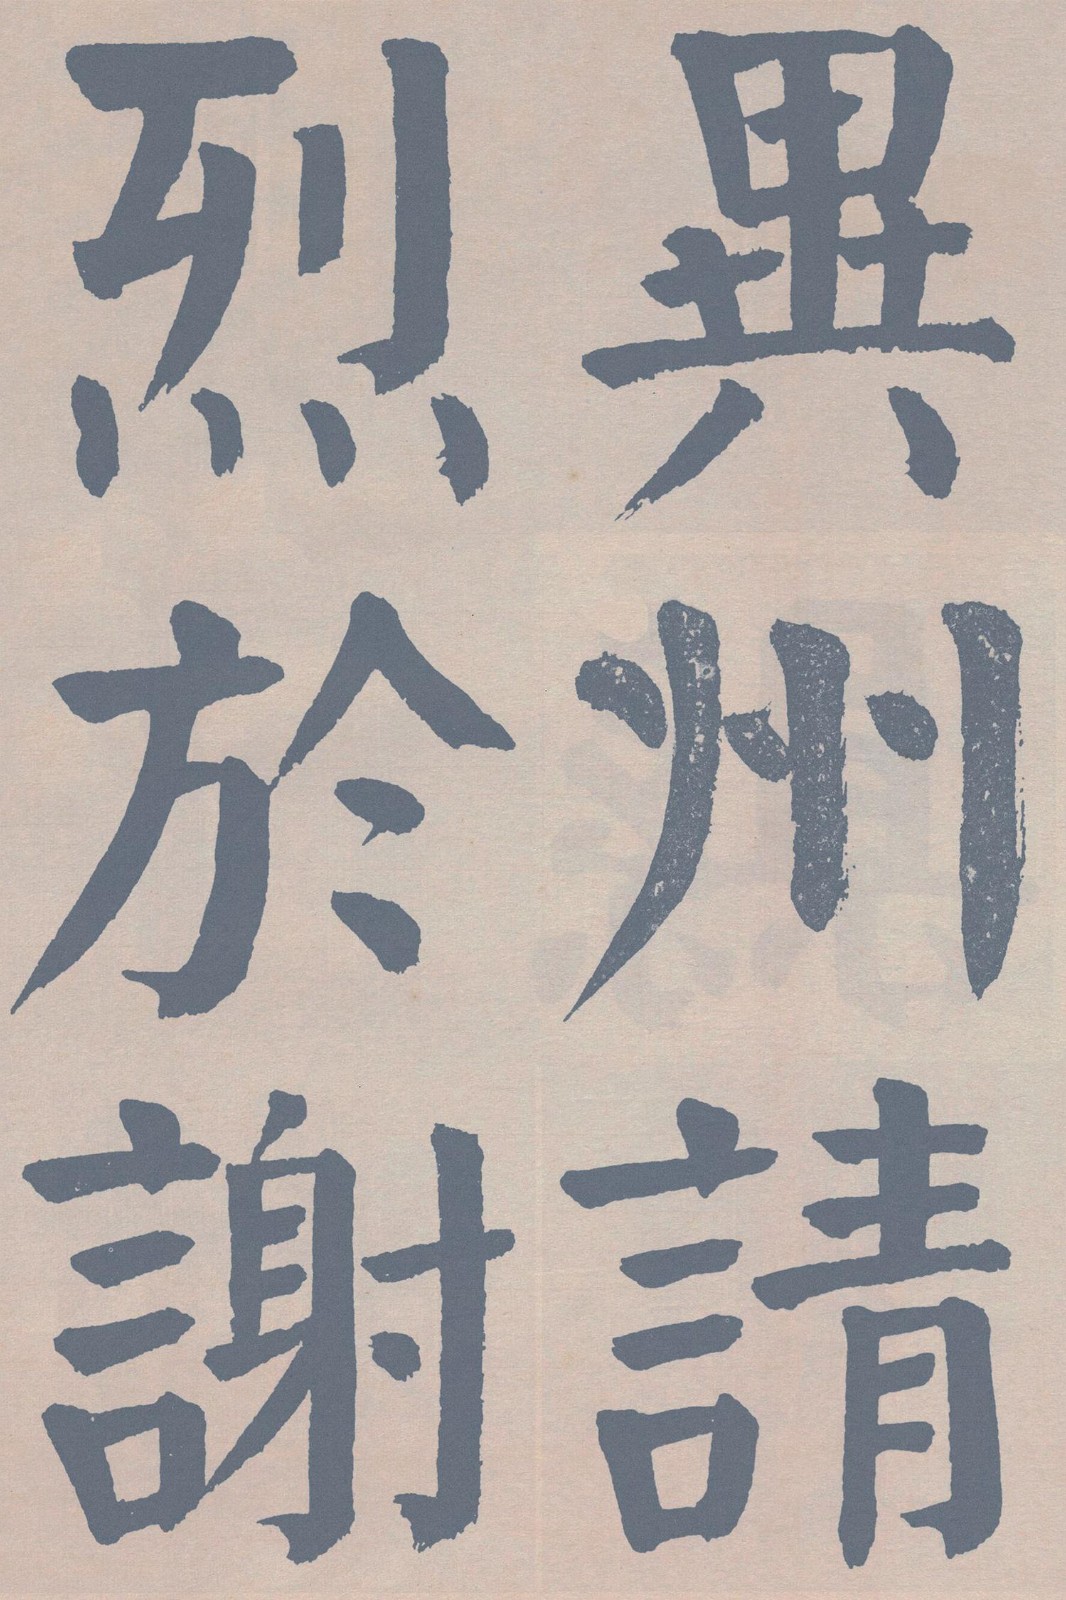 異州請
烈於謝